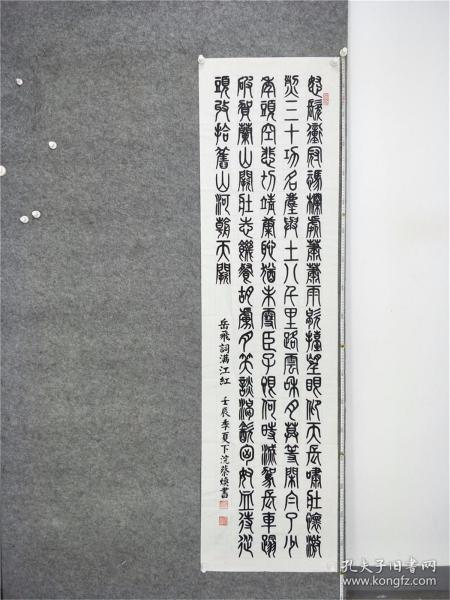 怒髮衝冠憑欄處蕭蕭雨歇擡望眼仰天長嘯壯懷激
烈三十功名塵與土八千里路雲和月莫等閑白了少
年頭空悲切靖康恥猶未雪臣子恨何時滅駕長車踏
破賀蘭山闕壯志飢餐胡虜肉笑談渴飲匈奴血待從
頭收拾舊山河朝天闕
岳飛詞满江紅 壬辰季夏下浣蔡焕書
孔夫子旧书网
www.kongfz.com